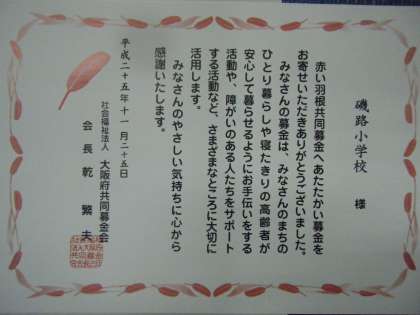 磯路小学校　様
赤い羽根共同募金へあたたかい募金を
お寄せいただきありがとうございました。
みなさんの募金は、みなさんのまちの
ひとり暮らしや寝たきりの高齢者が
安心して暮らせるようにお手伝いをする
活動や、障がいのある人たちをサポート
する活動など、さまざまなところに大切に
活用します。
みなさんのやさしい気持ちに心から
感謝いたします。
平成二十五年十一月二十五日
社会福祉法人　大阪府共同募金会
会長　乾　繁夫